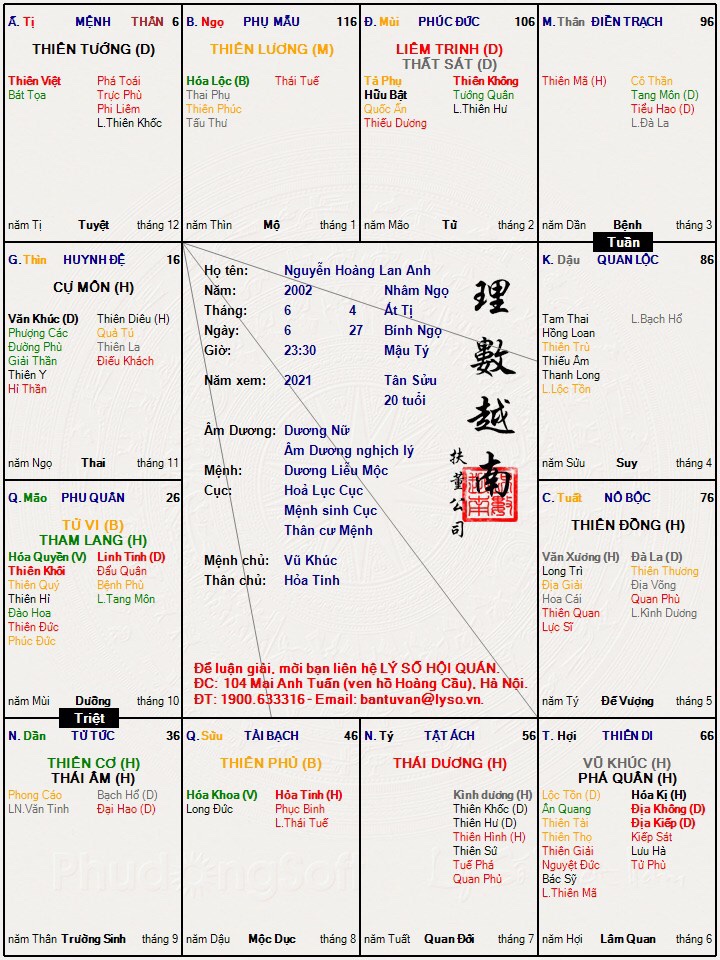 Ấ. Tị MỆNH THÂN 6
THIÊN TƯỚNG (D)
Thiên Việt Phá Toái
Bát Tọa Trực Phù
Phi Liêm
L.Thiên Khốc
năm Tị Tuyệt tháng 12
B. Ngọ PHỤ MẪU 116
THIÊN LƯƠNG (M)
Hóa Lộc (B) Thái Tuế
Thai Phụ
Thiên Phúc
Tấu Thư
năm Thìn Mộ tháng 1
Đ. Mùi PHÚC ĐỨC 106
LIÊM TRINH (D)
THẤT SÁT (D)
Tả Phụ Thiên Không
Hữu Bật Tướng Quân
Quốc Ấn L.Thiên Hư
Thiếu Dương
năm Mão Tử tháng 2
M. Thân ĐIỀN TRẠCH 96
Thiên Mã (H) Cô Thần
Tang Môn (D)
Tiểu Hao (D)
L.Đà La
năm Dần Bệnh tháng 3
Tuần
G. Thìn HUYNH ĐỆ 16
CỰ MÔN (H)
Văn Khúc (D) Thiên Diêu (H)
Phượng Các Quả Tú
Đường Phù Thiên La
Giải Thần Điếu Khách
Thiên Y
Hỉ Thần
năm Ngọ Thai tháng 11
Họ tên: Nguyễn Hoảng Lan Anh
Năm: 2002 Nhâm Ngọ
Tháng: 6 4 Ất Tị
Ngày: 6 27 Bính Ngọ
Giờ: 23:30 Mậu Tý
Năm xem: 2021 Tân Sửu
20 tuổi
Âm Dương: Dương Nữ
Âm Dương nghịch lý
Mệnh: Dương Liễu Mộc
Cục: Hoả Lục Cục
Mệnh sinh Cục
Thân cư Mệnh
Mệnh chủ: Vũ Khúc
Thân chủ: Hỏa Tinh
理數越南
扶董公司
Để luận giải, mời bạn liên hệ LÝ SỐ HỘI QUÁN.
ĐC: 104 Mai Anh Tuấn (ven hồ Hoàng Cầu), Hà Nội.
ĐT: 1900.633316 - Email: bantuvan@lyso.vn.
K. Dậu QUAN LỘC 86
Tam Thai L.Bạch Hổ
Hồng Loan
Thiên Trù
Thiếu Âm
Thanh Long
L.Lộc Tồn
năm Sửu Suy tháng 4
Q. Mão PHU QUÂN 26
TỬ VI (B)
THAM LANG (H)
Hóa Quyền (V) Linh Tinh (D)
Thiên Khôi Đẩu Quân
Thiên Quý Bệnh Phù
Thiên Hỉ L.Tang Môn
Đào Hoa
Thiên Đức
Phúc Đức
năm Mùi Dưỡng tháng 10
Triệt
C. Tuất NÔ BỘC 76
THIÊN ĐỒNG (H)
Văn Xương (H) Đà La (D)
Long Trì Thiên Thương
Địa Giải Địa Võng
Hoa Cái Quan Phù
Thiên Quan L.Kình Dương
Lực Sĩ
năm Tý Đế Vượng tháng 5
N. Dần TỬ TỨC 36
THIÊN CƠ (H)
THÁI ÂM (H)
Phong Cáo Bạch Hổ (D)
LN.Văn Tinh Đại Hao (D)
năm Thân Trường Sinh tháng 9
Q. Sửu TÀI BẠCH 46
THIÊN PHỦ (B)
Hóa Khoa (V) Hỏa Tinh (H)
Long Đức Phục Binh
L.Thái Tuế
năm Dậu Mộc Dục tháng 8
N. Tý TẬT ÁCH 56
THÁI DƯƠNG (H)
Kình dương (H)
Thiên Khốc (D)
Thiên Hư (D)
Thiên Hình (H)
Thiên Sứ
Tuế Phá
Quan Phủ
năm Tuất Quan Đới tháng 7
T. Hợi THIÊN DI 66
VŨ KHÚC (H)
PHÁ QUÂN (H)
Lộc Tồn (D) Hóa Kị (H)
Ân Quang Địa Không (D)
Thiên Tài Địa Kiếp (D)
Thiên Thọ Kiếp Sát
Thiên Giải Lưu Hà
Nguyệt Đức Tử Phù
Bác Sỹ
L.Thiên Mã
năm Hợi Lâm Quan tháng 6